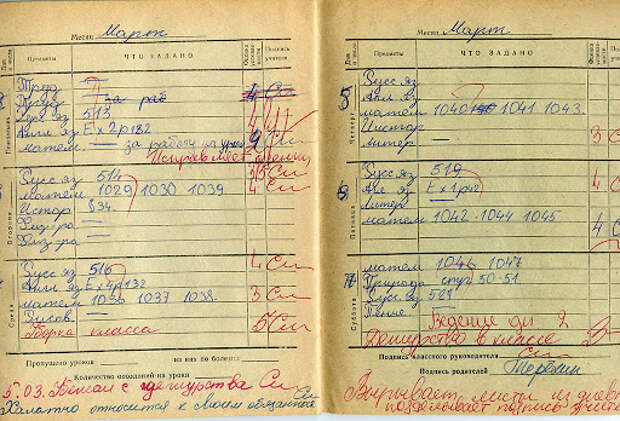 Месяц Март
Дни и числа Предметы ЧТО ЗАДАНО Оценка успеваемости Подпись учителя
Понедельник
Труд —
Труд — за раб 4 Си
Русс яз 513 4
Англ яз Ex 2 p 132 4
матем. — за работу на уроке 2 Си
Исправляет оценки
Вторник
Русс яз 514 3/5 Си
матем 1029 1030 1039 4 Си
Истор §34.
Физ-ра —
Физ-ра —
Среда
Русс яз 516 4 Си
Англ яз Ex 4 p 132
матем 1030 1037 1038. 3 Си
Рисов. —
Уборка класса 5 Си
Пропущено уроков из них по болезни
Количество опозданий на уроки
5.03. Бежал с дежурства Си
Халатно относится к своим обязанностям Си
Месяц Март
Дни и числа Предметы ЧТО ЗАДАНО
Четверг
5 Русс яз
Англ яз —
матем 1040 1041 1043.
Истор
литер — 3
Пятница
6 Русс яз 519 4
Анг яз Ex 1 p 42
Литер —
матем 1042-1044 1045 4
Суббота
7 матем 1046 1047
Природа стр 50-51
Русс яз 528
Пение — Ведение дн 2
Дежурство в классе 5-
Подпись классного руководителя Си
Подпись родителей Терёхин
Вырывает листы из дневника
подделывает подпись